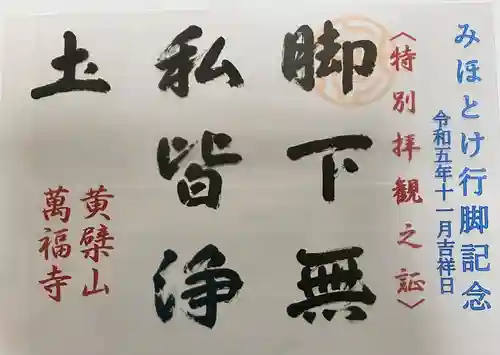 みほとけ行脚記念
令和五年十一月吉祥日
〈特別拝観之証〉
脚下無
私皆浄
土
黄檗山
萬福寺